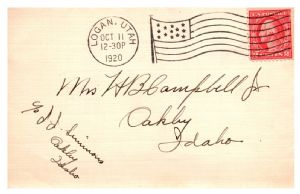 LOGAN, UTAH
OCT 11
12-30P
1920
Mrs H B Campbell Jr
Oakley
Idaho
c/o
Oakley
Idaho